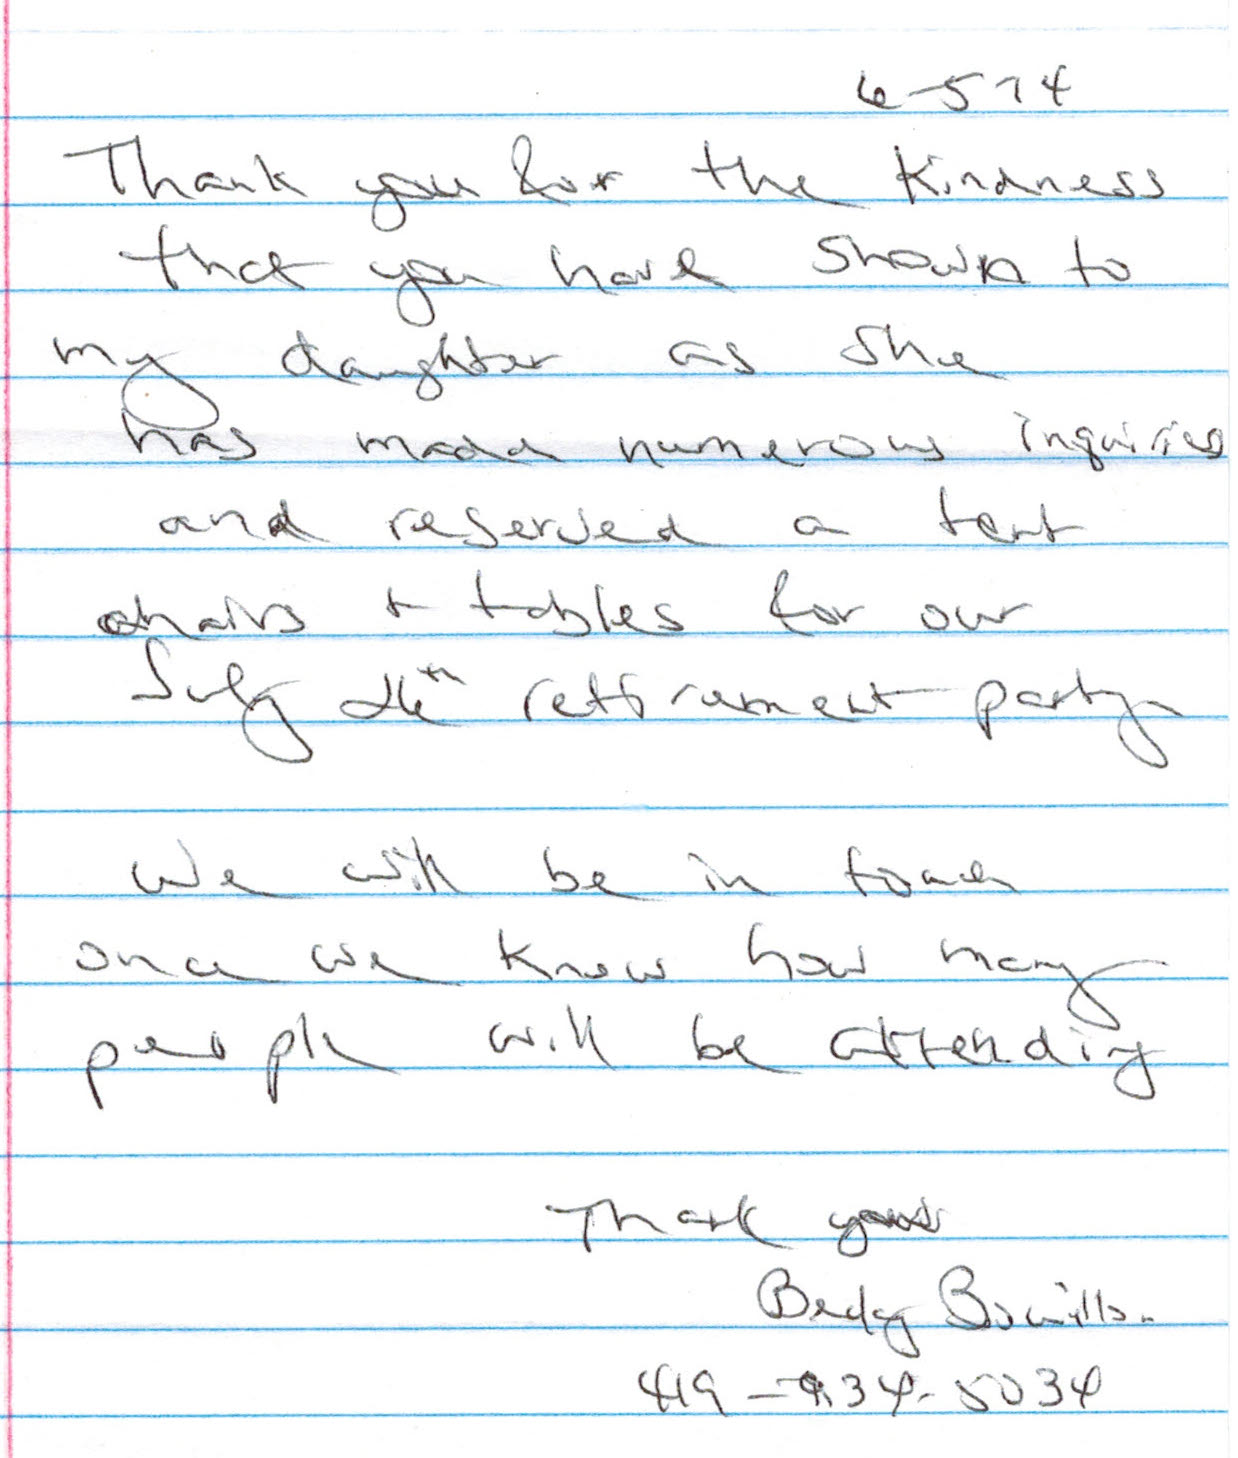 6-5 14
Thank you for the kindness
that you have shown to
my daughter as she
has made numerous inquiries
and reserved a tent
chairs + tables for our
July 26th retirement party
We will be in touch
once we know how many
people will be attending
Thank you
419-934-5034